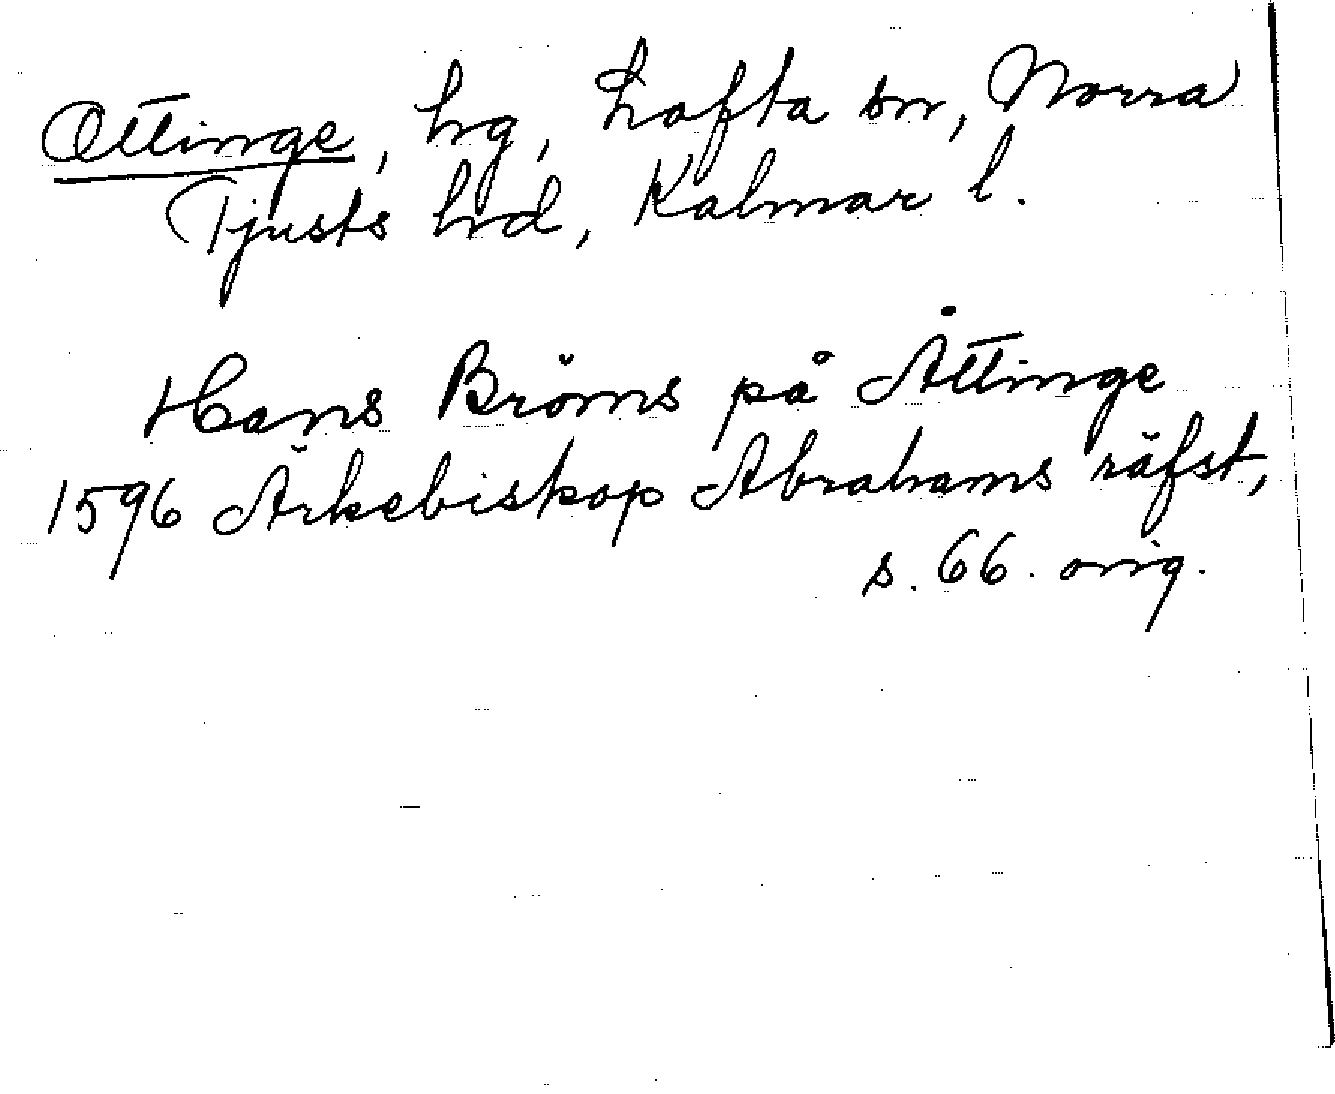 Ottinge, hg, Lofta sn, Norra
Tjusts hrd, Kalmar l.
Hans Bröms på Åttinge
1596 Ärkebiskop Abrahams räfst,
s. 66. orig.